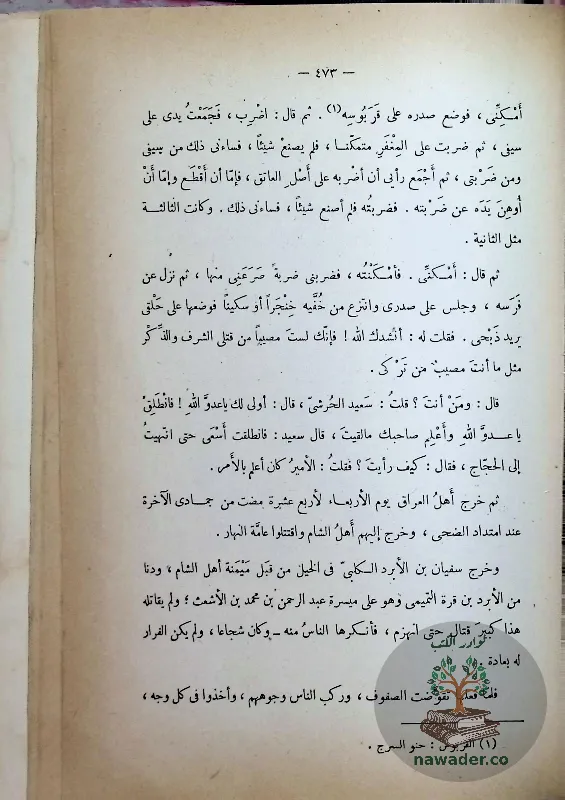 — ٤٧٣ —
أَمْكِنِّى ، فوضع صدره على قَرَبُوسِه (١) . ثم قال : اضْرِب ، فَجَمَعْتُ يدى على
سيفى ، ثم ضربت على المِغْفَرِ متمكّنا ، فلم يصنعْ شيئاً ، فساءنى ذلك من سيفى
ومن ضَرْبتى ، ثم أَجْمَع رأيى أن أضربه على أَصْلِ العاتق ، فإمّا أن أَقْطَع وإمّا أنْ
أُوهِنَ يَدَه عن ضَرْبته . فضربتُه فلم أصنع شيئاً ، فساءنى ذلك . وكانت الثالثة
مثل الثانية .
ثم قال : أَمْكنِّى . فأمْكَنْتُه ، فضربنى ضربةً صَرَعَنِى منها ، ثم نزل عن
فَرَسه ، وجلس على صدرى وانتزع من خُفَّيه خِنْجَراً أو سكيناً فوضعها على حَلْقى
يريد ذَبْحى . فقلت له : أنشدك الله ! فإنّك لستَ مصيباً من قتلى الشرف والذِّكْر
مثل ما أنتَ مصيبٌ من تَرْكى .
قال : ومَنْ أنتَ ؟ قلتُ : سَعيد الحُرشىّ ، قال : أولى لك ياعدوَّ اللهِ ! فانْطَلِقْ
يا عدوَّ اللهِ وأَعْلِم صاحبك مالقيتَ ، قال سعيد : فانطلقت أَسْعَى حتى انتهيتُ
إلى الحجّاج ، فقال : كيف رأيتَ ؟ فقلتُ : الأميرُ كان أعلم بالأَمر .
ثم خرج أهلُ العراق يوم الأربعاء لأربع عشرة مضت من جمادى الآخرة
عند امتداد الضحى ، وخرج إليهم أَهلُ الشام واقتتلوا عامَّة النهار .
وخرج سفيان بن الأبرد الكلبىّ فى الخيل من قبَل مَيْمَنة أهل الشام ، ودنا
من الأبرد بن قرة التميمى وهو على ميسرة عبد الرحمن بن محمد بن الأشعث ؛ ولم يقاتله
هذا كبيرَ قتالٍ حتى انهزم ، فأنكرها الناسُ منه – وكان شجاعا ، ولم يكن الفرار
له بعادة .
فلما فعلَ تقوّضت الصفوف ، وركب الناس وجوههم ، وأخذوا فى كل وجه ،
(١) القربوس : حنو السرج .
نوادر الكتب
nawader.co